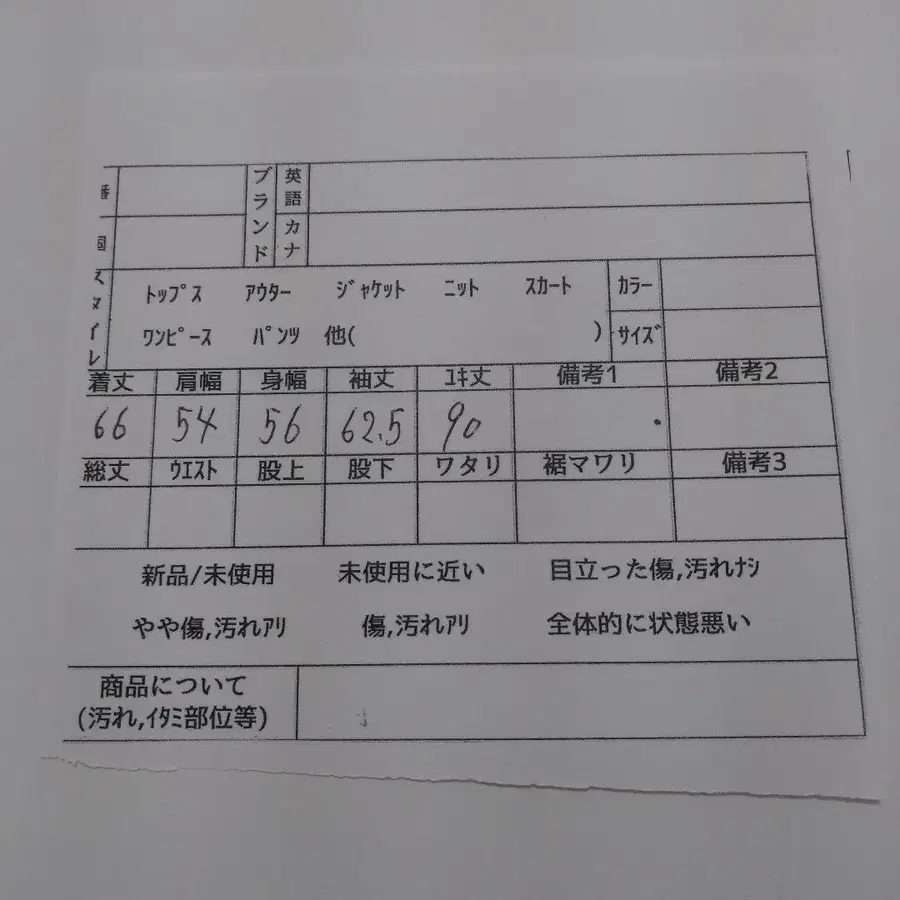 番 ブランド 英語
個 カナ
スタイル トップス アウター ジャケット ニット スカート カラー
ワンピース パンツ 他( ) サイズ
着丈 肩幅 身幅 袖丈 ユキ丈 備考1 備考2
66 54 56 62.5 90
総丈 ウエスト 股上 股下 ワタリ 裾マワリ 備考3
新品/未使用 未使用に近い 目立った傷,汚れナシ
やや傷,汚れアリ 傷,汚れアリ 全体的に状態悪い
商品について
(汚れ,イタミ部位等)